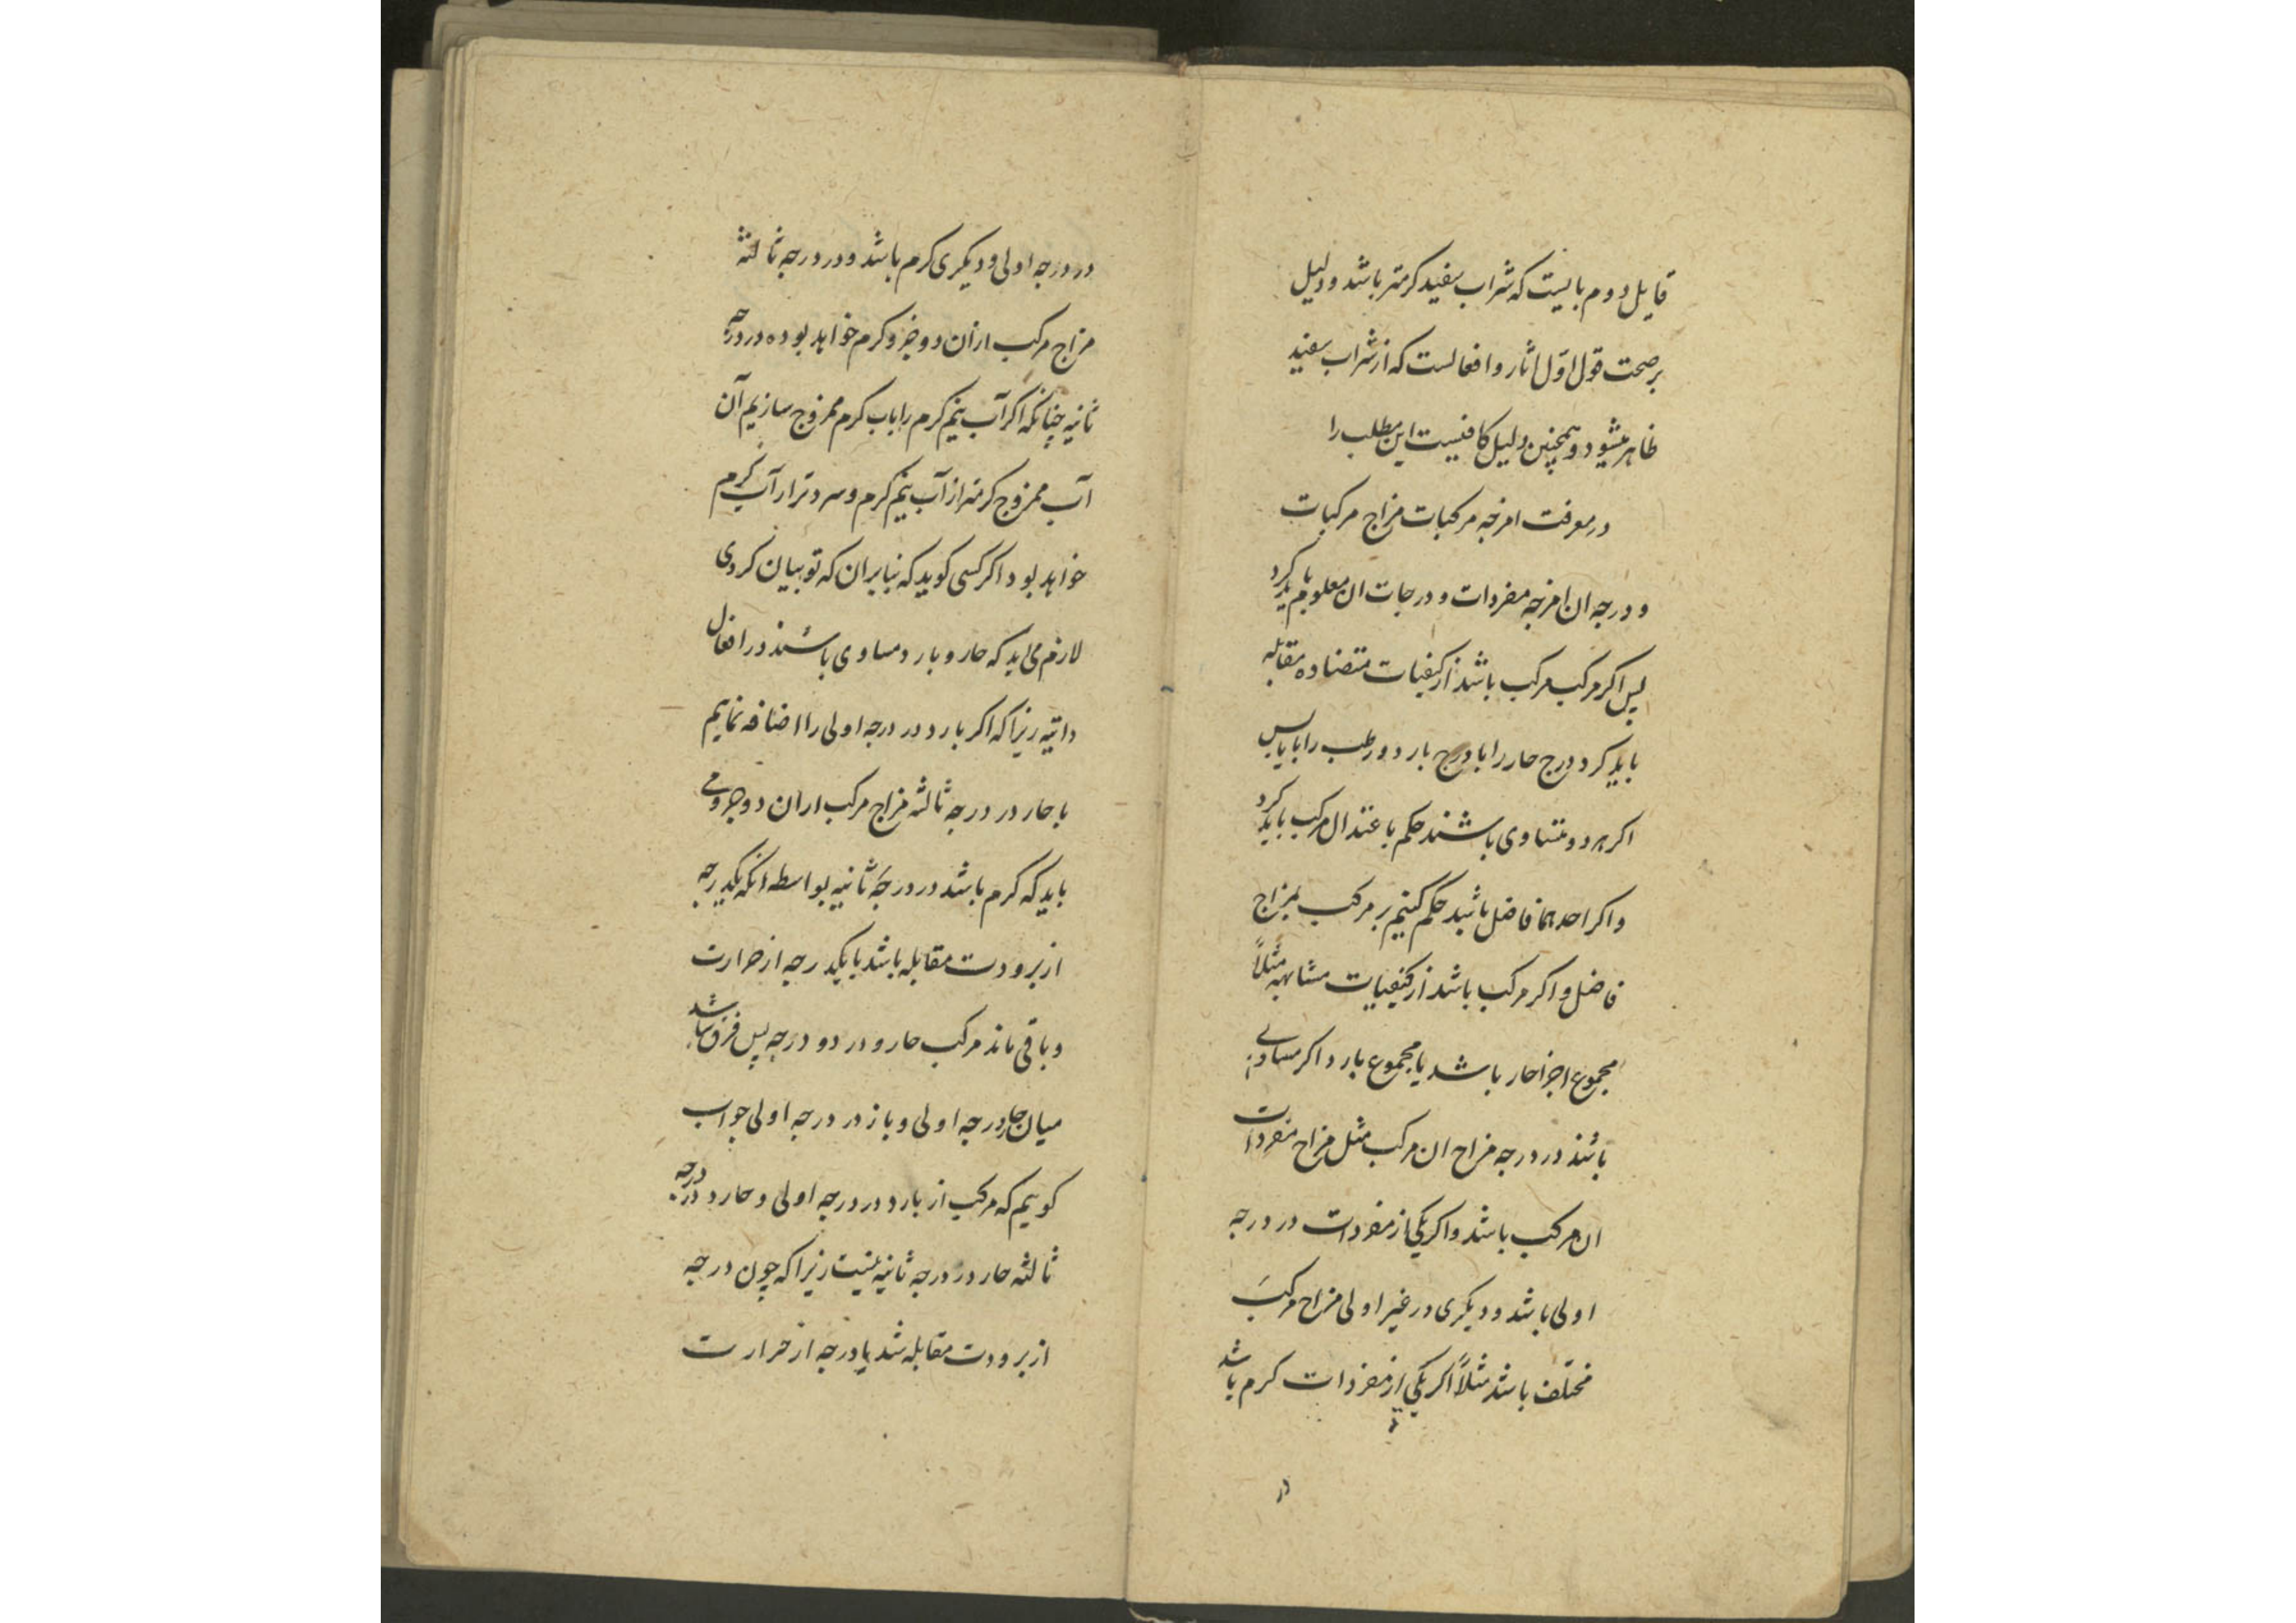 قایل دوم بانیست که شراب سفید کرمتر باشد و دلیل
بر صحت قول اوّل اثار و افعالست که از شراب سفید
ظاهر میشود و همچنین دلیل کافیست این مطلب را
در معرفت امزجه مرکبات مزاج مرکبات
و درجه ان از امزجه مفردات و درجات ان معلوم باید کرد
پس اکر مرکب مرکب باشد از کیفیات متضاده مقابله
باید کرد درج حار را با درج بارد و رطب را بایابس
اکر هر دو متساوی باشند حکم باعتدال مرکب باید کرد
و اکر احدهما فاضل باشد حکم کنیم بر مرکب بمزاج
فاضل و اکر مرکب باشد از کیفیات مشابهه مثلاً
مجموع اجزا حار باشد یا مجموع بارد اکر مساوی
باشند در درجه مزاج ان مرکب مثل مزاج مفردات
ان مرکب باشد و اکر یکی از مفردات در درجه
اولی باشد و دیکری در غیر اولی مزاج مرکب
مختلف باشد مثلاً اکر یکی از مفردات کرم باشد
در
در درجه اولی و دیکری کرم باشد و در درجه ثالثه
مزاج مرکب ازان دو جزو کرم خواهد بود در درجه
ثانیه چنانکه اکر آب نیم کرم را باب کرم ممزوج سازیم آن
آب ممزوج کرمتر از آب نیم کرم و سردتر از آب کرم
خواهد بود اکر کسی کوید که بنابران که تو بیان کردی
لازم می اید که حار و بارد مساوی باشند در افعال
ذاتیه زیرا که اکر بارد در درجه اولی را اضافه نماییم
با حار در درجه ثالثه مزاج مرکب ازان دو جزو می
باید که کرم باشد در درجهٔ ثانیه بواسطه انکه یکدرجه
از برودت مقابله باشد بایکدرجه از حرارت
و باقی ماند مرکب حار در دو درجه پس فرق نباشد
میان حار درجه اولی و بارد در درجه اولی جواب
کوییم که مرکب از بارد در درجه اولی و حار در درجه
ثالثه حار در درجه ثانیه نیست زیرا که چون درجه
از برودت مقابله شد با درجه از حرارت